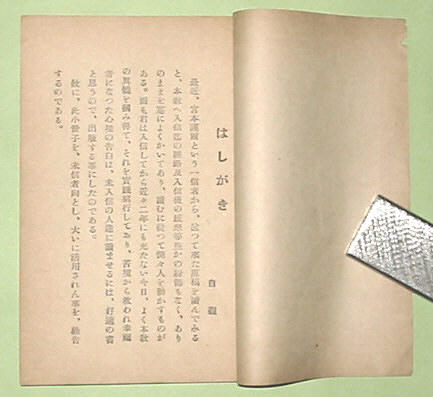 はしがき
自観
最近、宮本運爾という一信者から、送つて来た原稿を読んでみる
と、本教へ入信迄の経路及入信後の感想等些かの粉飾もなく、あり
のままを能によくかいてあり、読むに従つて惻々人を動かすものが
ある。而も君は入信してから近々二年にも充たない今日、よく本教
の真髄を掴み得て、それを実践躬行してあり、苦境から救われ幸運
者になつた心境の告白は、未入信の人達に読ませるには、好適の書
と思うので、出版する事にしたのである。
故に、此小冊子を、未信者向とし、大いに活用されん事を、勧告
するのである。